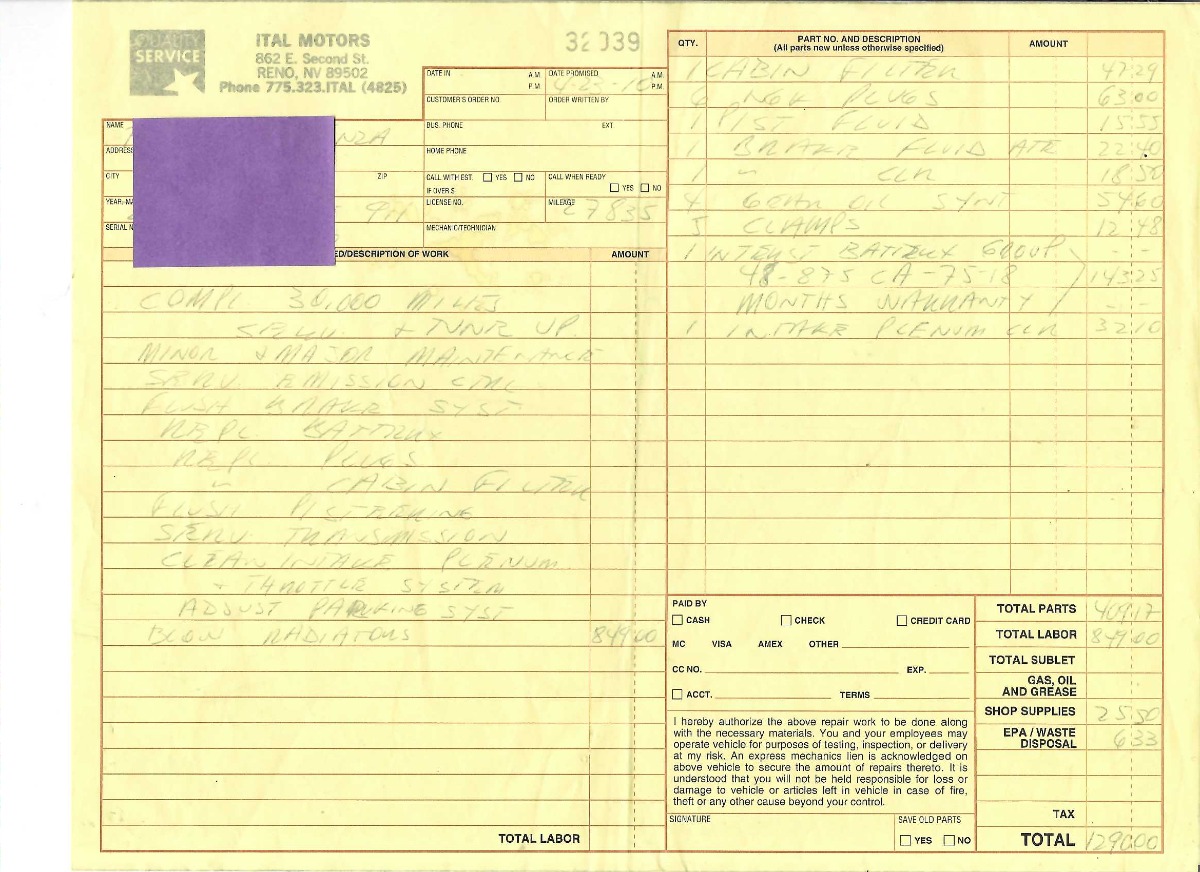 QUALITY
SERVICE
ITAL MOTORS
862 E. Second St.
RENO, NV 89502
Phone 775.323.ITAL (4825)
32039
DATE IN A.M. P.M.
DATE PROMISED A.M. P.M.
CUSTOMER'S ORDER NO.
ORDER WRITTEN BY
NAME
BUS. PHONE EXT.
ADDRESS
HOME PHONE
CITY ZIP
CALL WITH EST. YES NO
IF OVER $
CALL WHEN READY
YES NO
YEAR-MA 911
LICENSE NO.
MILEAGE 27835
SERIAL N
MECHANIC/TECHNICIAN
ED/DESCRIPTION OF WORK AMOUNT
COMPL 30,000 MILES
SERV. + TUNE UP
MINOR & MAJOR MAINTENANCE
SERV. EMISSION CTRL
FLUSH BRAKE SYST
REPL. BATTERY
REPL. PLUGS
" CABIN FILTER
FLUSH P/STEERING
SERV. TRANSMISSION
CLEAN INTAKE PLENUM
+ THROTTLE SYSTEM
ADJUST PARKING SYST
BLOW RADIATORS 849.00
TOTAL LABOR
QTY. PART NO. AND DESCRIPTION AMOUNT
(All parts new unless otherwise specified)
1 CABIN FILTER 47.29
6 NGK PLUGS 63.00
1 P/ST FLUID 15.55
1 BRAKE FLUID ATE 22.40
1 " CLR 18.50
4 GEAR OIL SYNT 54.60
5 CLAMPS 12.48
1 INTERST BATTERY GROUP --
48-875 CA-75-18 143.25
MONTHS WARRANTY --
1 INTAKE PLENUM CLR 32.10
PAID BY
CASH CHECK CREDIT CARD
MC VISA AMEX OTHER
CC NO. EXP.
ACCT. TERMS
I hereby authorize the above repair work to be done along
with the necessary materials. You and your employees may
operate vehicle for purposes of testing, inspection, or delivery
at my risk. An express mechanics lien is acknowledged on
above vehicle to secure the amount of repairs thereto. It is
understood that you will not be held responsible for loss or
damage to vehicle or articles left in vehicle in case of fire,
theft or any other cause beyond your control.
SIGNATURE
SAVE OLD PARTS
YES NO
TOTAL PARTS 409.17
TOTAL LABOR 849.00
TOTAL SUBLET
GAS, OIL
AND GREASE
SHOP SUPPLIES 25.50
EPA / WASTE
DISPOSAL 6.33
TAX
TOTAL 1290.00